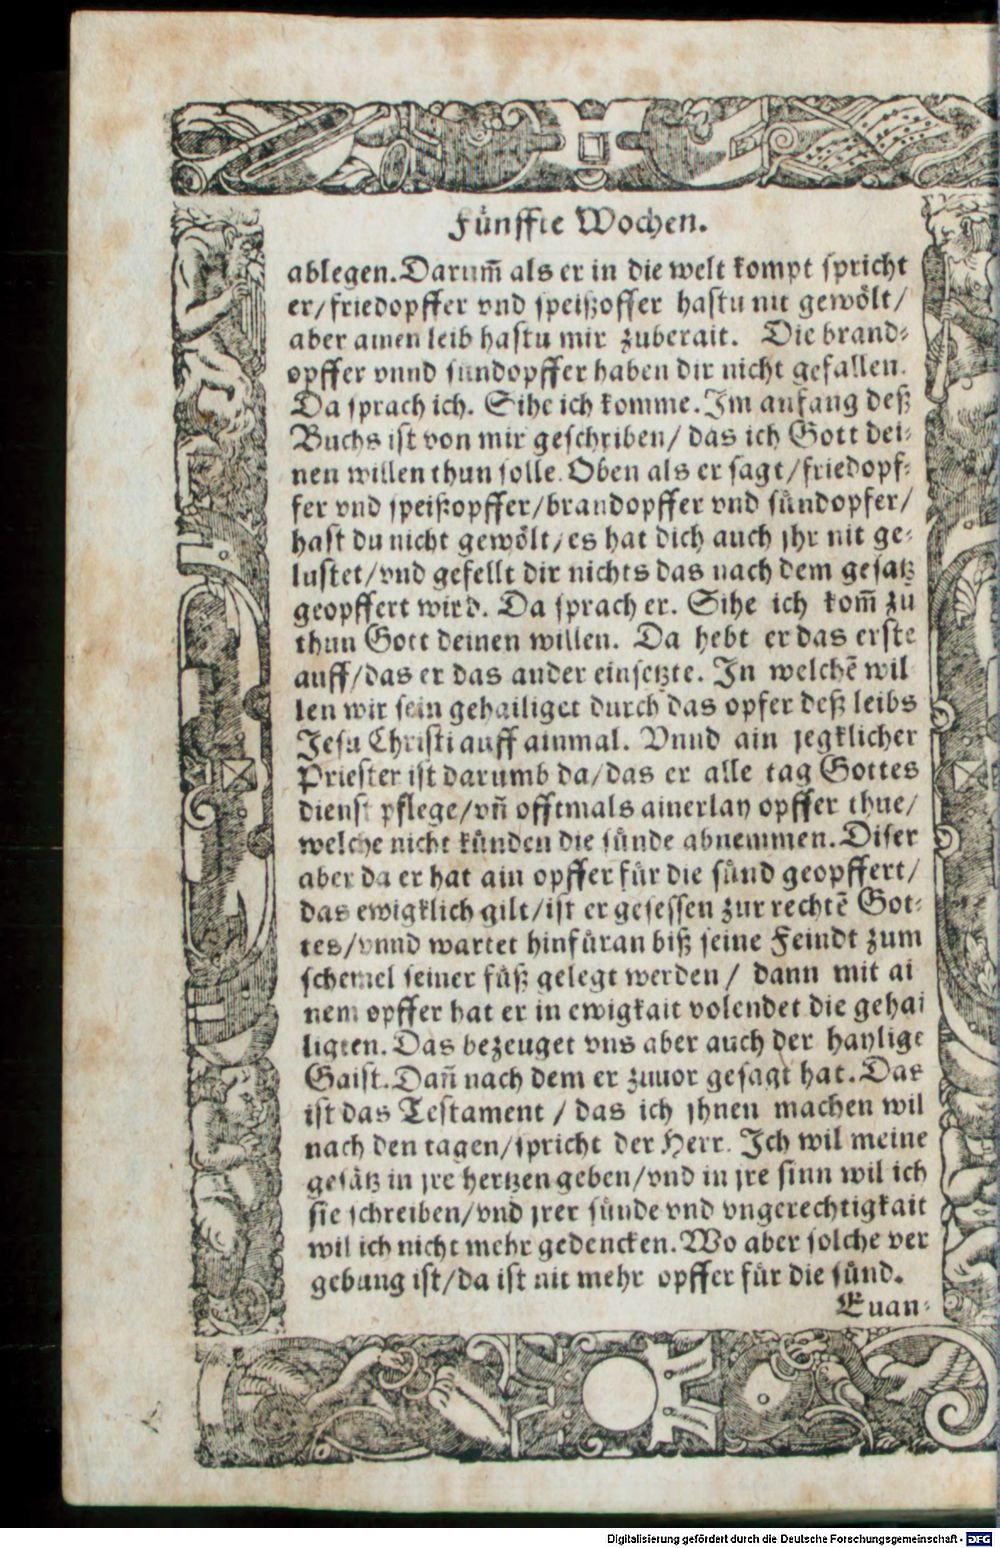 Fünffte Wochen.
ablegen. Darum̄ als er in die welt kompt spricht
er/friedopffer vnd speißoffer hastu nit gewölt/
aber ainen leib hastu mir zuberait. Die brand⸗
opffer vnnd sündopffer haben dir nicht gefallen.
Da sprach ich. Sihe ich komme. Im anfang deß
Buchs ist von mir geschriben/ das ich Gott dei⸗
nen willen thun solle. Oben als er sagt/friedopf⸗
fer vnd speißopffer/brandopffer vnd sündopfer/
hast du nicht gewölt/es hat dich auch jhr nit ge⸗
lustet/vnd gefellt dir nichts das nach dem gesatz
geopffert wird. Da sprach er. Sihe ich kom̄ zu
thun Gott deinen willen. Da hebt er das erste
auff/das er das ander einsetzte. In welchē wil
len wir sein gehailiget durch das opfer deß leibs
Jesu Christi auff ainmal. Vnnd ain jegklicher
Priester ist darumb da/das er alle tag Gottes
dienst pflege/vn̄ offtmals ainerlay opffer thue/
welche nicht künden die sünde abnemmen. Diser
aber da er hat ain opffer für die sünd geopffert/
das ewigklich gilt/ist er gesessen zur rechtē Got⸗
tes/vnnd wartet hinfüran biß seine Feindt zum
schemel seiner füß gelegt werden/ dann mit ai
nem opffer hat er in ewigkait volendet die gehai
ligten. Das bezeuget vns aber auch der haylige
Gaist. Dan̄ nach dem er zuuor gesagt hat. Das
ist das Testament / das ich jhnen machen wil
nach den tagen/spricht der Herr. Ich wil meine
gesätz in jre hertzen geben/vnd in jre sinn wil ich
sie schreiben/vnd jrer sünde vnd vngerechtigkait
wil ich nicht mehr gedencken. Wo aber solche ver
gebung ist/da ist nit mehr opffer für die sünd.
Euan⸗
Digitalisierung gefördert durch die Deutsche Forschungsgemeinschaft - DFG